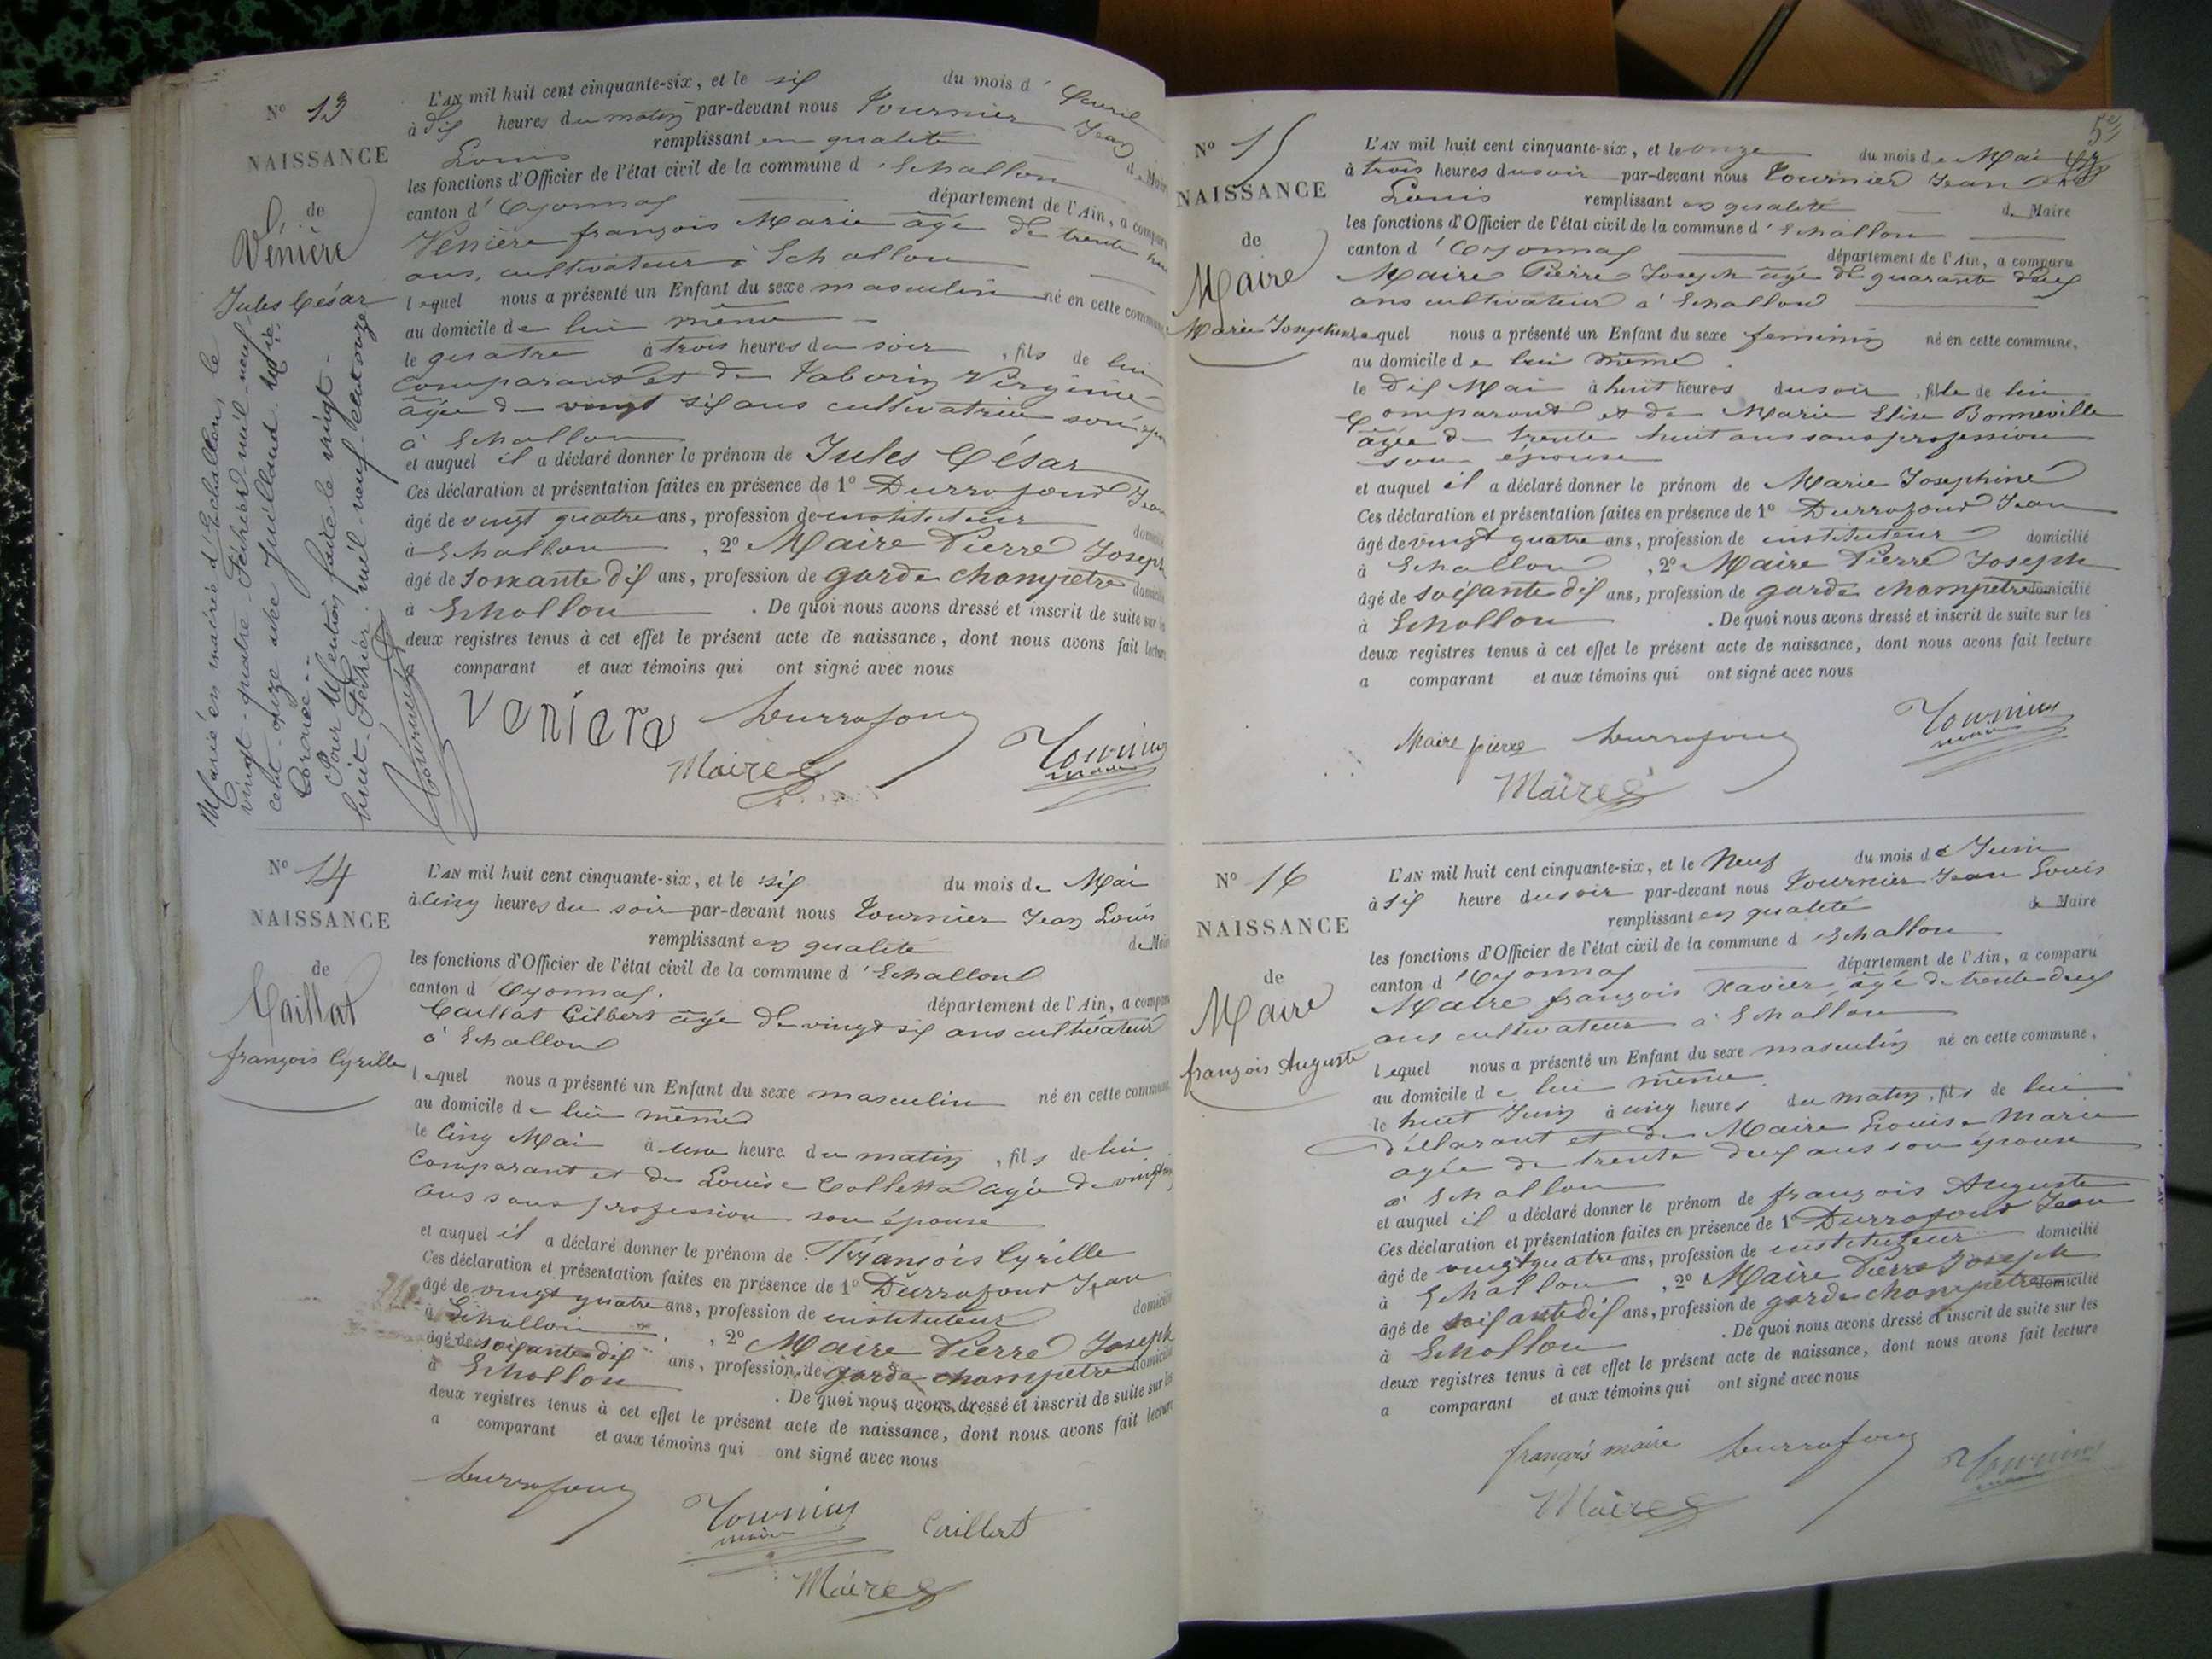 N° 13
NAISSANCE
de
Vénière
Jules César
Marié en mairie d'Echallon, le
vingt-quatre Février mil neuf
cent onze avec Juilland
Pour Mention faite le vingt-
huit Février mil neuf cent onze
L'AN mil huit cent cinquante-six, et le six du mois d' Avril
à dix heures du matin par-devant nous Tournier Jean
Louis remplissant en qualité de Maire
les fonctions d'Officier de l'état civil de la commune d'Echallon
canton d'Oyonnax département de l'Ain, a comparu
Vénière françois Marie âgé de trente
ans, cultivateur à Echallon
lequel nous a présenté un Enfant du sexe masculin né en cette commune
au domicile de lui même
le quatre à trois heures du soir, fils de lui
comparant et de Taborin Virginie
âgée de vingt six ans cultivatrice son épouse
à Echallon
et auquel il a déclaré donner le prénom de Jules César
Ces déclaration et présentation faites en présence de 1° Durrafour Jean
âgé de vingt quatre ans, profession de instituteur domicilié
à Echallon, 2° Maire Pierre Joseph
âgé de soixante dix ans, profession de garde champetre domicilié
à Echallon. De quoi nous avons dressé et inscrit de suite sur les
deux registres tenus à cet effet le présent acte de naissance, dont nous avons fait lecture
a comparant et aux témoins qui ont signé avec nous
Veniere Durrafour
Maire Tournier
maire
N° 14
NAISSANCE
de
Caillat
françois Cyrille
L'AN mil huit cent cinquante-six, et le six du mois de Mai
à cinq heures du soir par-devant nous Tournier Jean Louis
remplissant en qualité de Maire
les fonctions d'Officier de l'état civil de la commune d'Echallon
canton d Oyonnax. département de l'Ain, a comparu
Caillat Gilbert âgé de vingt six ans cultivateur
à Echallon
lequel nous a présenté un Enfant du sexe masculin né en cette commune
au domicile de lui même
le cinq Mai à une heure du matin, fils de lui
Comparant et de Louise Colletta agée de vingt
ans sans profession son épouse
et auquel il a déclaré donner le prénom de François Cyrille
Ces déclaration et présentation faites en présence de 1° Durrafour Jean
âgé de vingt quatre ans, profession de instituteur domicilié
à Echallon, 2° Maire Pierre Joseph
âgé de soixante dix ans, profession de garde champetre domicilié
à Echallon. De quoi nous avons dressé et inscrit de suite sur les
deux registres tenus à cet effet le présent acte de naissance, dont nous avons fait lecture
a comparant et aux témoins qui ont signé avec nous
Durrafour
Tournier Caillat
maire
Maire
N° 15
NAISSANCE
de
Maire
Marie Josephine
L'AN mil huit cent cinquante-six, et le onze du mois de Mai
à trois heures du soir par-devant nous Tournier Jean
Louis remplissant en qualité de Maire
les fonctions d'Officier de l'état civil de la commune d'Echallon
canton d'Oyonnax département de l'Ain, a comparu
Maire Pierre Joseph âgé de quarante deux
ans cultivateur à Echallon
lequel nous a présenté un Enfant du sexe feminin né en cette commune,
au domicile de lui même
le dix Mai à huit heures du soir, fille de lui
Comparant et de Marie Elise Bonneville
âgée de trente huit ans sans profession
son épouse
et auquel il a déclaré donner le prénom de Marie Josephine
Ces déclaration et présentation faites en présence de 1° Durrafour Jean
âgé de vingt quatre ans, profession de instituteur domicilié
à Echallon, 2° Maire Pierre Joseph
âgé de soixante dix ans, profession de garde champetre domicilié
à Echallon. De quoi nous avons dressé et inscrit de suite sur les
deux registres tenus à cet effet le présent acte de naissance, dont nous avons fait lecture
a comparant et aux témoins qui ont signé avec nous
Maire pierre Durrafour Tournier
maire
Maire
N° 16
NAISSANCE
de
Maire
françois Auguste
L'AN mil huit cent cinquante-six, et le Neuf du mois de Juin
à six heure du soir par-devant nous Tournier Jean Louis
remplissant en qualité de Maire
les fonctions d'Officier de l'état civil de la commune d Echallon
canton d'Oyonnax département de l'Ain, a comparu
Maire françois Xavier, âgé de trente deux
ans cultivateur à Echallon
lequel nous a présenté un Enfant du sexe masculin né en cette commune,
au domicile de lui même
le huit Juin à cinq heures du matin, fils de lui
Déclarant et de Maire Louise Marie
agée de trente deux ans son épouse
à Echallon
et auquel il a déclaré donner le prénom de françois Auguste
Ces déclaration et présentation faites en présence de 1° Durrafour Jean
âgé de vingt quatre ans, profession de instituteur domicilié
à Echallon, 2° Maire Pierre Joseph
âgé de soixante dix ans, profession de garde champetre domicilié
à Echallon. De quoi nous avons dressé et inscrit de suite sur les
deux registres tenus à cet effet le présent acte de naissance, dont nous avons fait lecture
a comparant et aux témoins qui ont signé avec nous
françois maire Durrafour Tournier
Maire